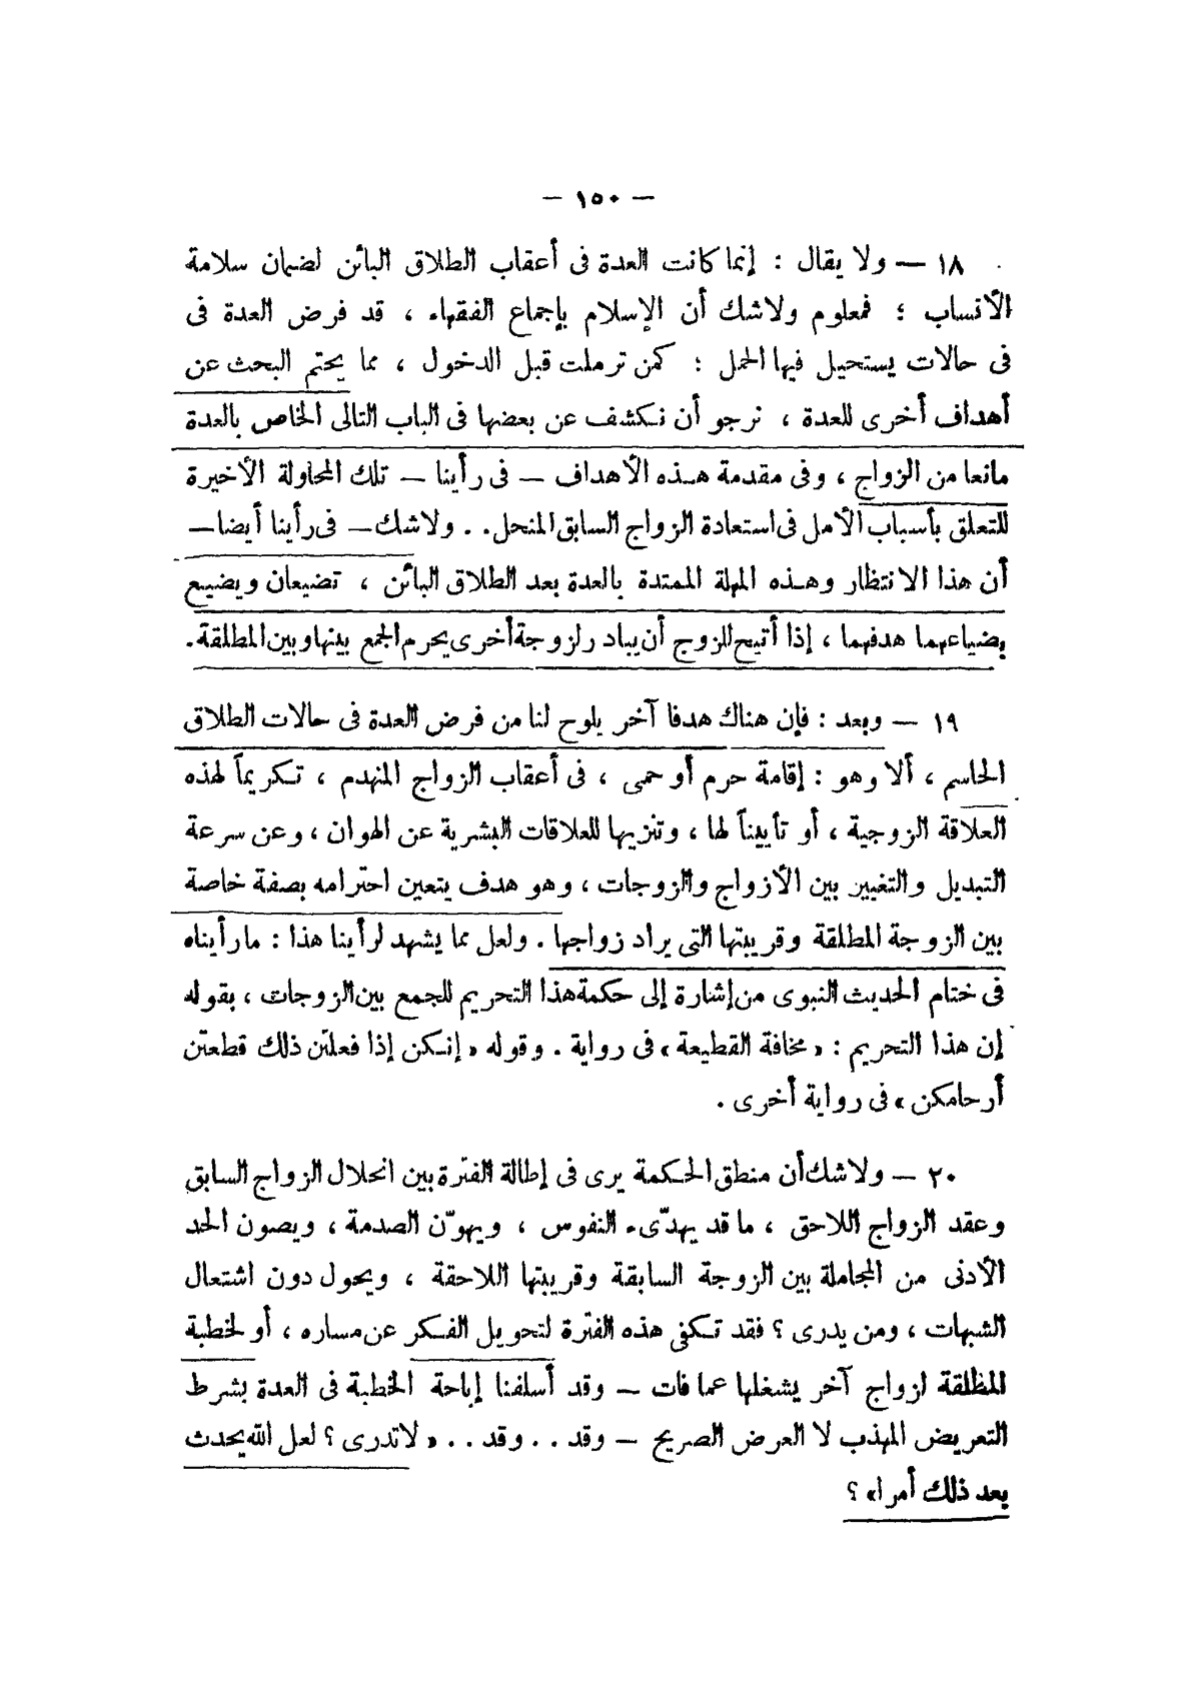 — ١٥٠ —
١٨ — ولا يقال : إنما كانت العدة فى أعقاب الطلاق البائن لضمان سلامة
الأنساب ؛ فمعلوم ولاشك أن الإسلام بإجماع الفقهاء ، قد فرض العدة فى
فى حالات يستحيل فيها الحمل : كمن ترملت قبل الدخول ، مما يحتم البحث عن
أهداف أخرى للعدة ، نرجو أن نكشف عن بعضها فى الباب التالى الخاص بالعدة
مانعا من الزواج ، وفى مقدمة هذه الأهداف — فى رأينا — تلك المحاولة الأخيرة
للتعلق بأسباب الأمل فى استعادة الزواج السابق المنحل . . ولاشك — فى رأينا أيضا —
أن هذا الانتظار وهذه المهلة الممتدة بالعدة بعد الطلاق البائن ، تضيعان ويضيع
بضياعهما هدفهما ، إذا أتيح للزوج أن يبادر لزوجة أخرى يحرم الجمع بينها وبين المطلقة .
١٩ — وبعد : فإن هناك هدفا آخر يلوح لنا من فرض العدة فى حالات الطلاق
الحاسم ، ألا وهو : إقامة حرم أو حمى ، فى أعقاب الزواج المنهدم ، تكريماً لهذه
العلاقة الزوجية ، أو تأبيناً لها ، وتنزيها للعلاقات البشرية عن الهوان ، وعن سرعة
التبديل والتغيير بين الأزواج والزوجات ، وهو هدف يتعين احترامه بصفة خاصة
بين الزوجة المطلقة وقريبتها التى يراد زواجها . ولعل مما يشهد لرأينا هذا : مارأيناه
فى ختام الحديث النبوى من إشارة إلى حكمة هذا التحريم للجمع بين الزوجات ، بقوله
إن هذا التحريم : « مخافة القطيعة » فى رواية . وقوله « إنكن إذا فعلتن ذلك قطعتن
أرحامكن » فى رواية أخرى .
٢٠ — ولاشك أن منطق الحكمة يرى فى إطالة الفترة بين انحلال الزواج السابق
وعقد الزواج اللاحق ، ما قد يهدّىء النفوس ، ويهوّن الصدمة ، ويصون الحد
الأدنى من المجاملة بين الزوجة السابقة وقريبتها اللاحقة ، ويحول دون اشتعال
الشبهات ، ومن يدرى ؟ فقد تكفى هذه الفترة لتحويل الفكر عن مساره ، أو لخطبة
المطلقة لزواج آخر يشغلها عما فات — وقد أسلفنا إباحة الخطبة فى العدة بشرط
التعريض المهذب لا العرض الصريح — وقد . . وقد . . « لاتدرى ؟ لعل الله يحدث
بعد ذلك أمرا » ؟